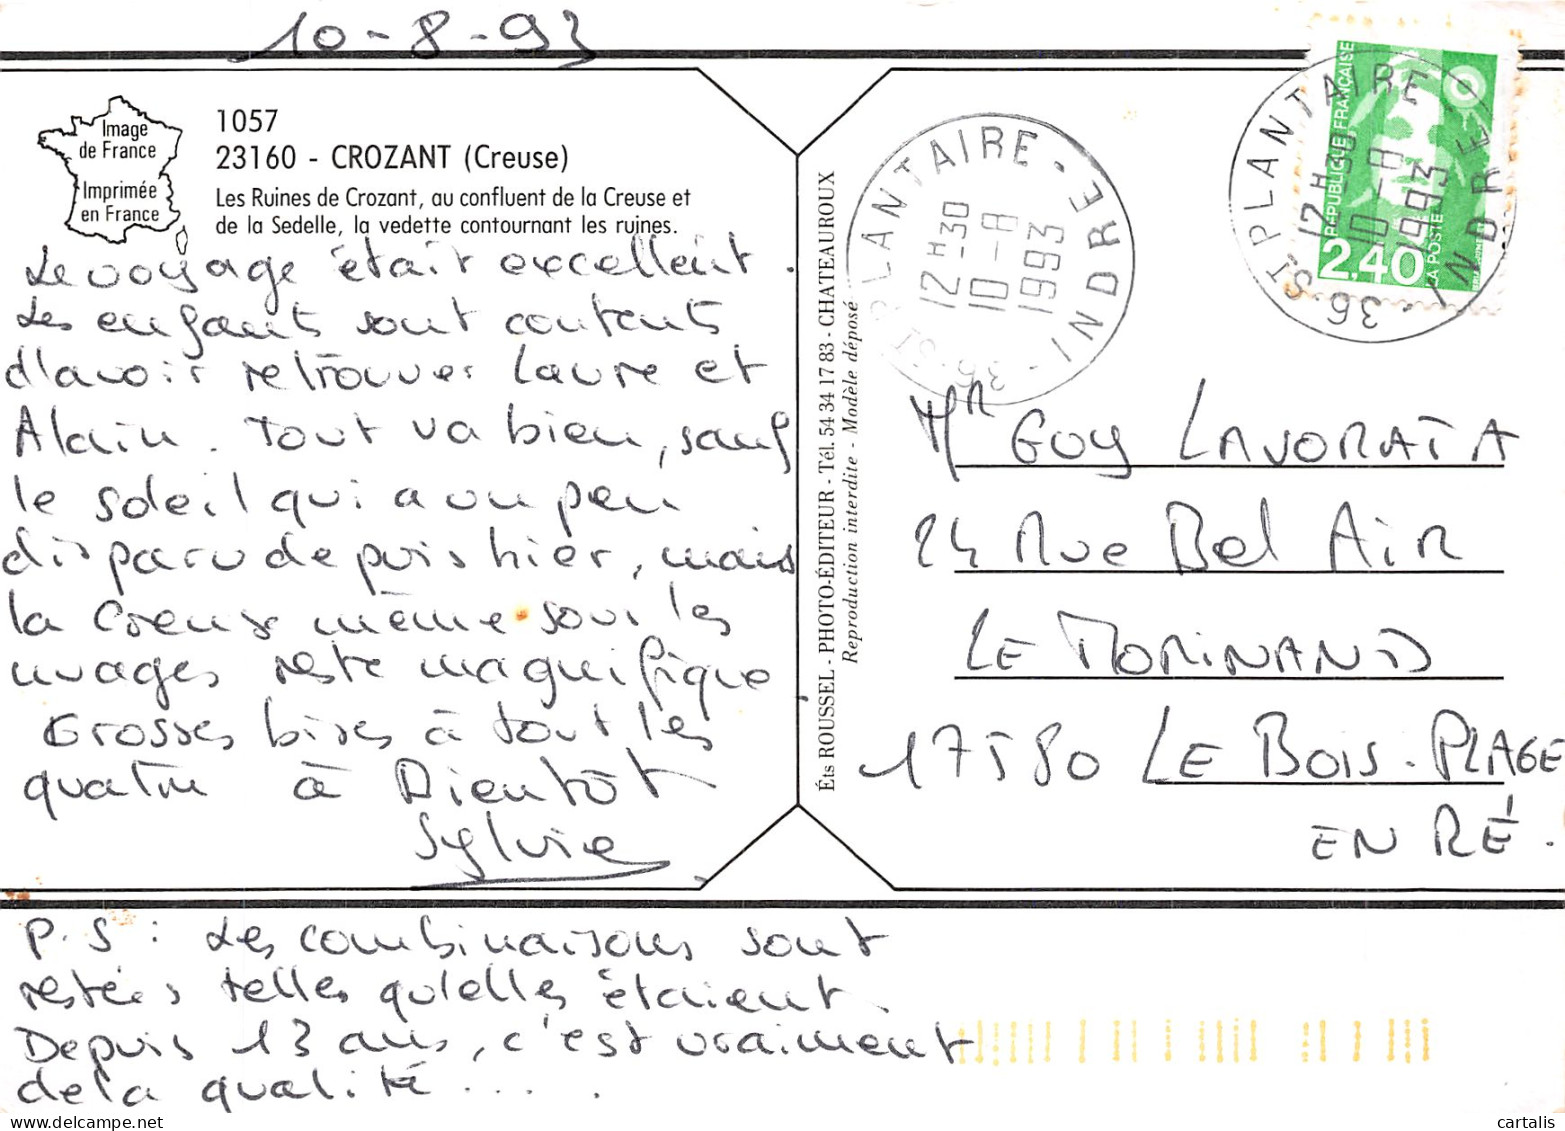 10-8-93
Image
de France
Imprimée
en France
1057
23160 - CROZANT (Creuse)
Les Ruines de Crozant, au confluent de la Creuse et
de la Sedelle, la vedette contournant les ruines.
Le voyage était excellent.
Les enfants sont contents
d'avoir retrouver Laure et
Alain. Tout va bien, sauf
le soleil qui a un peu
disparu depuis hier, mais
la Creuse même sous les
nuages reste magnifique
Grosses bises à tout les
quatre à Bientôt
Sylvie
P.S : Les combinaisons sont
restées telles qu'elles étaient.
Depuis 13 ans, c'est vraiment
de la qualité ....
Éts ROUSSEL - PHOTO-ÉDITEUR - Tél. 54 34 17 83 - CHATEAUROUX
Reproduction interdite - Modèle déposé
36 ST PLANTAIRE - INDRE
12 H -30
10 -8
1993
RÉPUBLIQUE FRANÇAISE
2,40
LA POSTE
36 ST PLANTAIRE INDRE
12 H -30
10 -8
1993
Mr GUY LAVORATA
24 Rue Bel Air
LE MORINAND
17580 LE BOIS-PLAGE
EN RÉ.
cartalis